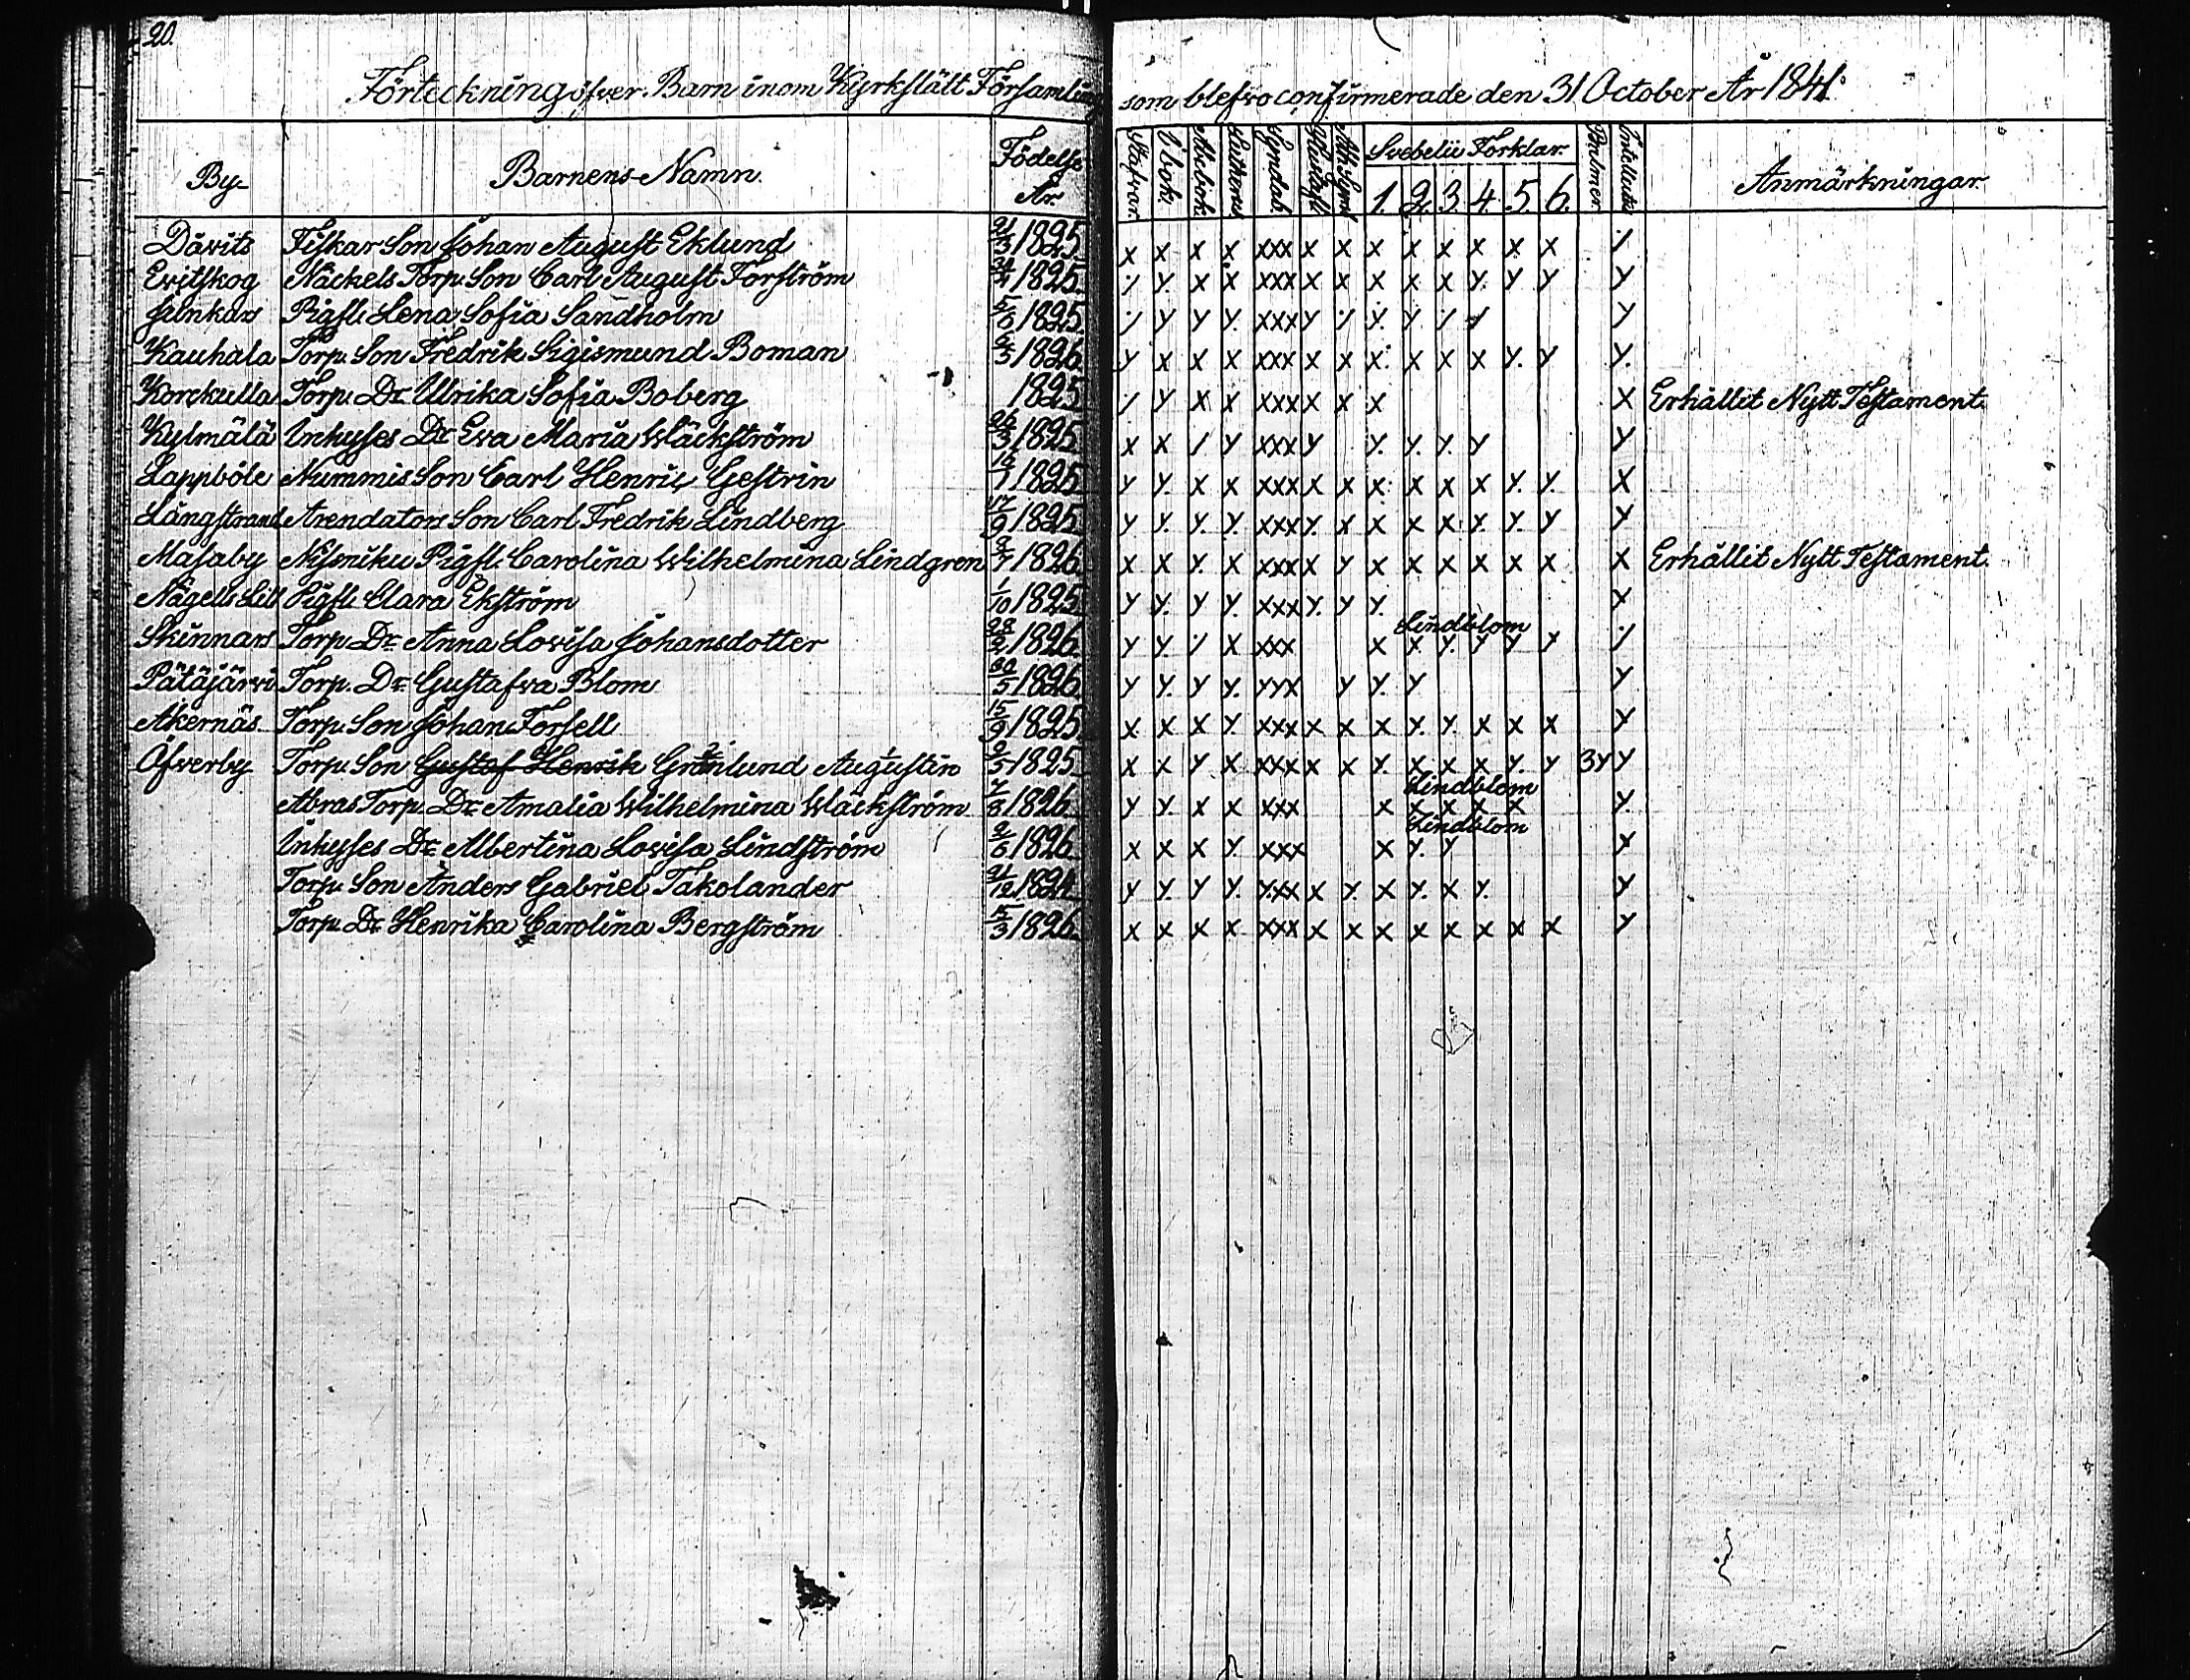 20.
Förteckning öfver Barn inom Kyrkslätt Församling som blefvo confirmerade den 31 October År 1841.
By Barnens Namn. Födelse År. Stafvar. Svebelii Förklar. 1. 2. 3. 4. 5. 6. Psalmer. Anmärkningar.
Dåvits Fiskar Son Johan August Eklund 21/3 1825. x x x x xxx x x x x x x x x /
Evitskog Näckels Torp. Son Carl August Forström 1825. / y. x x xxx x x x x x y. y y y
Junkars Pigs. Lena Sofia Sandholm 1825. / y y y. xxx y / y. y / / y
Kauhala Torp. Son Fredrik Sigismund Boman 1826. y x x x xxx x x x. x x x y. y y.
Korckulla Torp. Dr. Ulrika Sofia Boberg 1825. / y x x xxx x x x x Erhållit Nytt Testament.
Kylmälä Inhyses Dr. Eva Maria Wäckström 26/3 1825. x x / y xxx y y. y. y. y y
Lappböle Nummis Son Carl Henric Gestrin 1825. y y. x x xxx x x x. x x x y. y. x
Långstrand Arendators Son Carl Fredrik Lindberg 17/9 1825. y y. y. y. xxx y. x x x x y. y. y y
Masaby Nissniku Pigs. Carolina Wilhelmina Lindgren 1826. x x y. x xxx x y x x x x x x x Erhållit Nytt Testament.
Nägels Lill Pigs. Clara Ekström 1/10 1825. y y. y y. xxx y. y y. x
Lindblom
Skinnars Torp. Dr. Anna Lovisa Johansdotter 28/2 1826. y y. / x xxx x x y. y y y /
Pätäjärvi Torp. Dr. Gustafva Blom 30/5 1826. y y. y y. yyx y y. y y
Åkernäs Torp. Son Johan Forsell 15/9 1825. x x x y. xxx x x x y. y. x x x y
Öfverby Torp. Son Gustaf Henrik Grönlund Augustin 2/5 1825. x x y x xxx x x y. x x x y. y 3y y
Lindblom
Abras Torp. Dr. Amalia Wilhelmina Wäckström 1826. y y. x x xxx x x x x x y.
Lindblom
Inhyses Dr. Albertina Lovisa Lindström 2/6 1826. x x x y. xxx x y. y x
Torp. Son Anders Gabriel Takolander 21/12 1824. y y. y y. yxx x y. x y. x y. y
Torp. Dr. Henrika Carolina Bergström 15/3 1826. x x x x xxx x x x x x x x x y